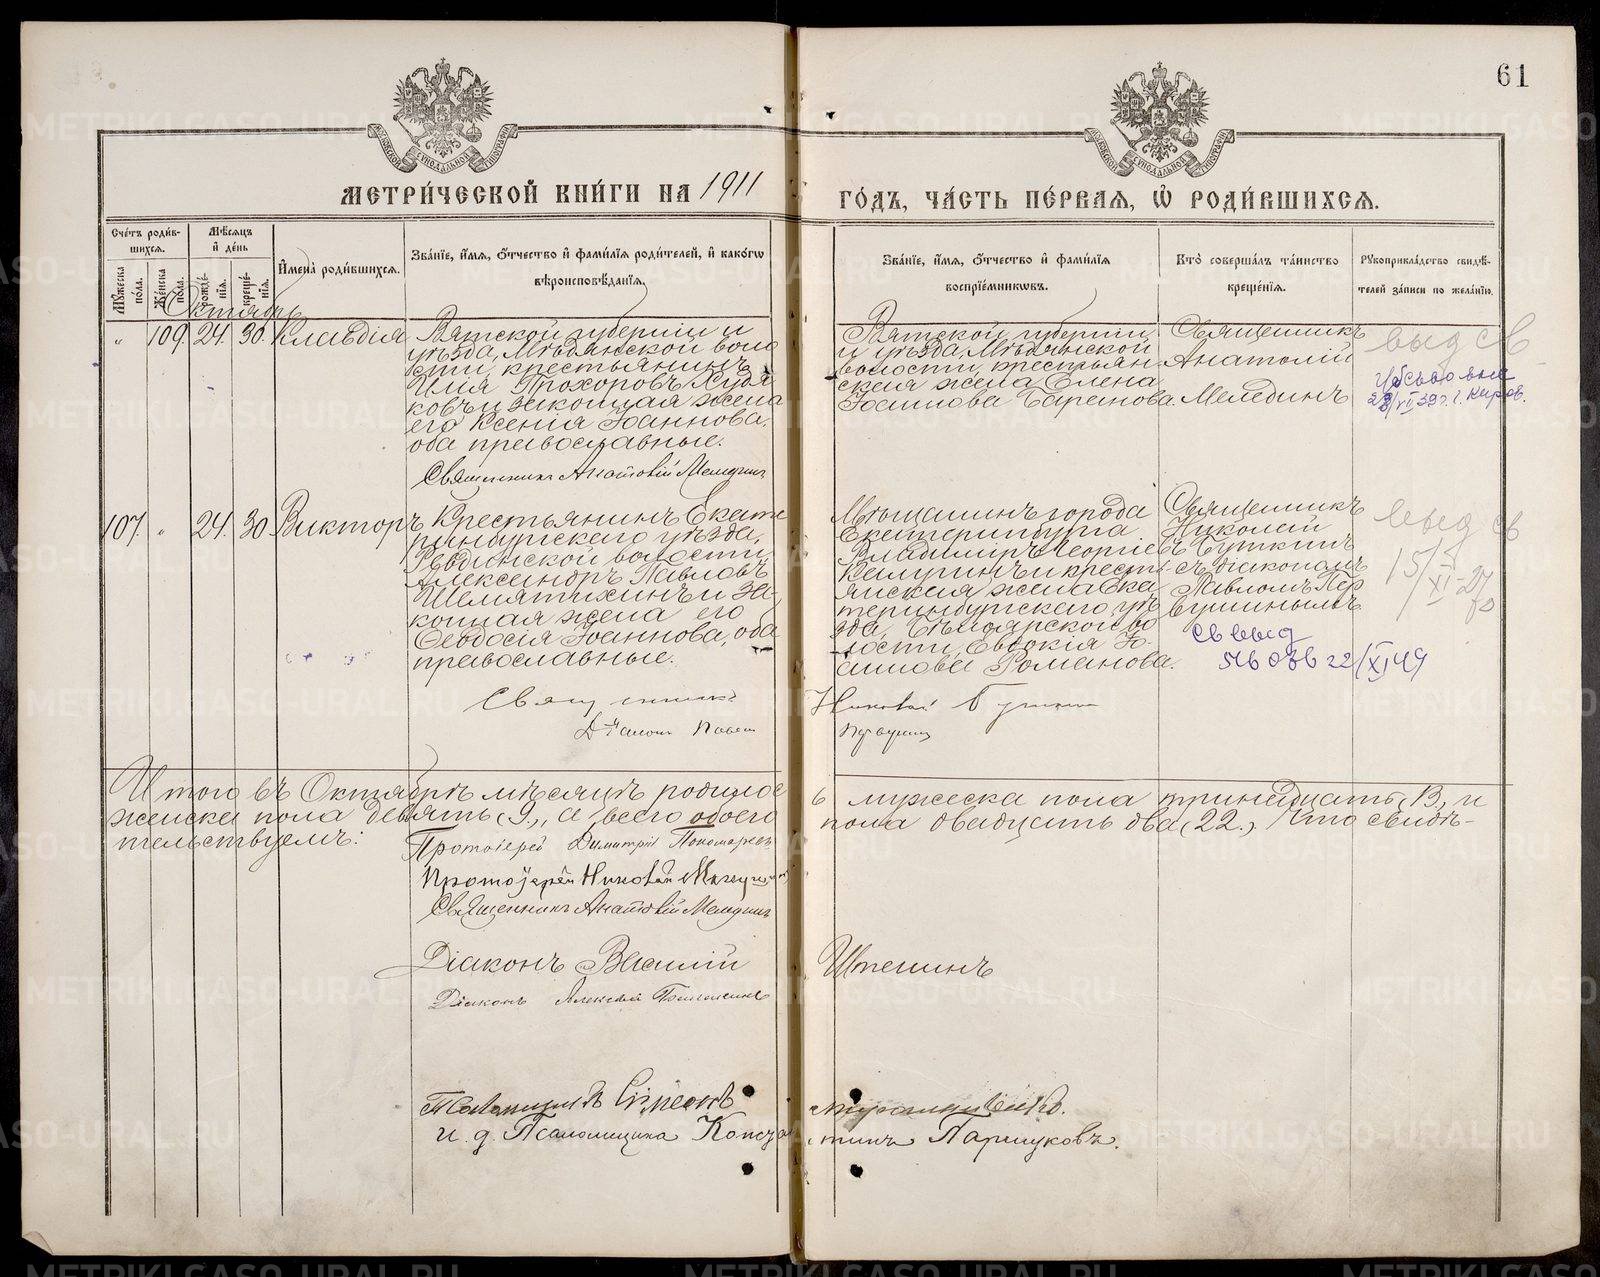 61
МЕТРИ́ЧЕСКОЙ КНИ́ГИ НА 1911
ГО́ДЪ, ЧА́СТЬ ПЕ́РВАЯ, Ѡ҆ РОДИ́ВШИХСЯ.
Сче́тъ роди́в-
шихся.
Мѣ́сяцъ
и҆ де́нь
Мꙋ́жеска по́ла.
Же́нска по́ла.
рожде́-
нія.
креще́-
нія.
И҆мена̀ роди́вшихся.
Зва́ніе, и҆́мя, ѻ҆́тчество и҆ фами́лїя роди́телей, и҆ како́гѡ
вѣроисповѣ́данїя.
Зва́ніе, и҆́мя, ѻ҆́тчество и҆ фами́лїя
воспрїе́мникѡвъ.
Кто̀ соверша́лъ та́инство
креще́нїя.
Рꙋкоприкла́дство свидѣ́-
телей за́писи по жела́нїю.
Октябрь
" 109. 24. 30. Клавдія
Вятской губерніи и
уѣзда, Мѣдянской воло
сти, крестьянинъ
Илія Прохоровъ Худя
ковъ и законная жена
его Ксенія Іоаннова,
оба православные.
Священникъ Анатолій Мелединъ
Вятской губерніи
и уѣзда, Мѣдянской
волости, крестьян
ская жена Елена
Іоаннова Баранова.
Священникъ
Анатолій
Мелединъ
выд св
107. " 24. 30. Викторъ
Крестьянинъ Екате
ринбургскаго уѣзда,
Ревдинской волости
Александръ Павловъ
Шемятихинъ и за-
конная жена его
Ѳеодосія Іоаннова, оба
православные.
Мѣщанинъ города
Екатеринбурга
Владиміръ Георгіев
и крест
янская жена Ека
теринбургскаго уѣ
зда, Бѣлоярской во
лости, Евдокія Іо-
аннова Романова.
Священникъ
Николай
Буткинъ
съ діакономъ
Павломъ Пер
вушинымъ
выд св
15/XI-27
св выд
22/XI 49
Священникъ Николай
Діаконъ Павел
Итого въ Октябрѣ мѣсяцѣ родилос
ь мужеска пола тринадцать, 13, и
женска пола девять, 9, а всего обоего
пола двадцать два, 22. Что свидѣ-
тельствуемъ:
Протоіерей Димитрій Пономаревъ
Протоіерей Николай
Священникъ Анатолій Мелединъ
Діаконъ Василій
Шпенинъ
Діаконъ Алексѣй
Псаломщикъ Симеонъ
и. д. Псаломщика Конста
нтинъ Паршуковъ.
METRIKI.GASO-URAL.RU